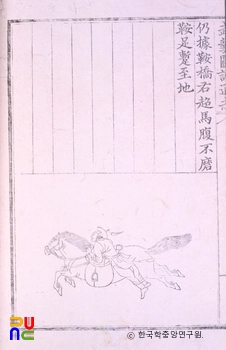 武藝圖譜通志
仍據鞍橋右超馬腹不磨
鞍足蹔至地
ⓒ 한국학중앙연구원